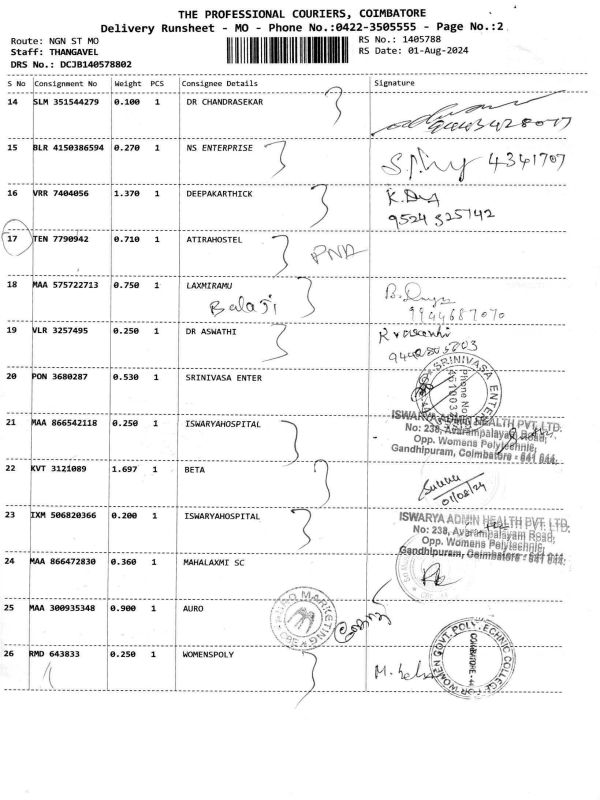 THE PROFESSIONAL COURIERS, COIMBATORE
Delivery Runsheet - MO - Phone No.:0422-3505555 - Page No.:2
Route: NGN ST MO
RS No.: 1405788
Staff: THANGAVEL
RS Date: 01-Aug-2024
DRS No.: DCJB140578802
S No Consignment No Weight PCS Consignee Details Signature
14 SLM 351544279 0.100 1 DR CHANDRASEKAR
15 BLR 4150386594 0.270 1 NS ENTERPRISE
4341707
16 VRR 7404056 1.370 1 DEEPAKARTHICK
9524325742
17 TEN 7790942 0.710 1 ATIRAHOSTEL
18 MAA 575722713 0.750 1 LAXMIRAMU
Balaji
9944687070
19 VLR 3257495 0.250 1 DR ASWATHI
20 PON 3680287 0.530 1 SRINIVASA ENTER
SRINIVASA ENTER
Phone No
21 MAA 866542118 0.250 1 ISWARYAHOSPITAL
ISWARYA ADMIN HEALTH PVT. LTD.
No: 238, Avarampalayam Road,
Opp. Womens Polytechnic,
Gandhipuram, Coimbatore - 641 044.
22 KVT 3121089 1.697 1 BETA
01/08/24
23 IXM 506820366 0.200 1 ISWARYAHOSPITAL
ISWARYA ADMIN HEALTH PVT. LTD.
No: 238, Avarampalayam Road,
Opp. Womens Polytechnic,
Gandhipuram, Coimbatore - 641 044.
24 MAA 866472830 0.360 1 MAHALAXMI SC
25 MAA 300935348 0.900 1 AURO
MARKETING
CBE
26 RMD 643833 0.250 1 WOMENSPOLY
GOVT. POLYTECHNIC COLLEGE FOR WOMEN
COIMBATORE